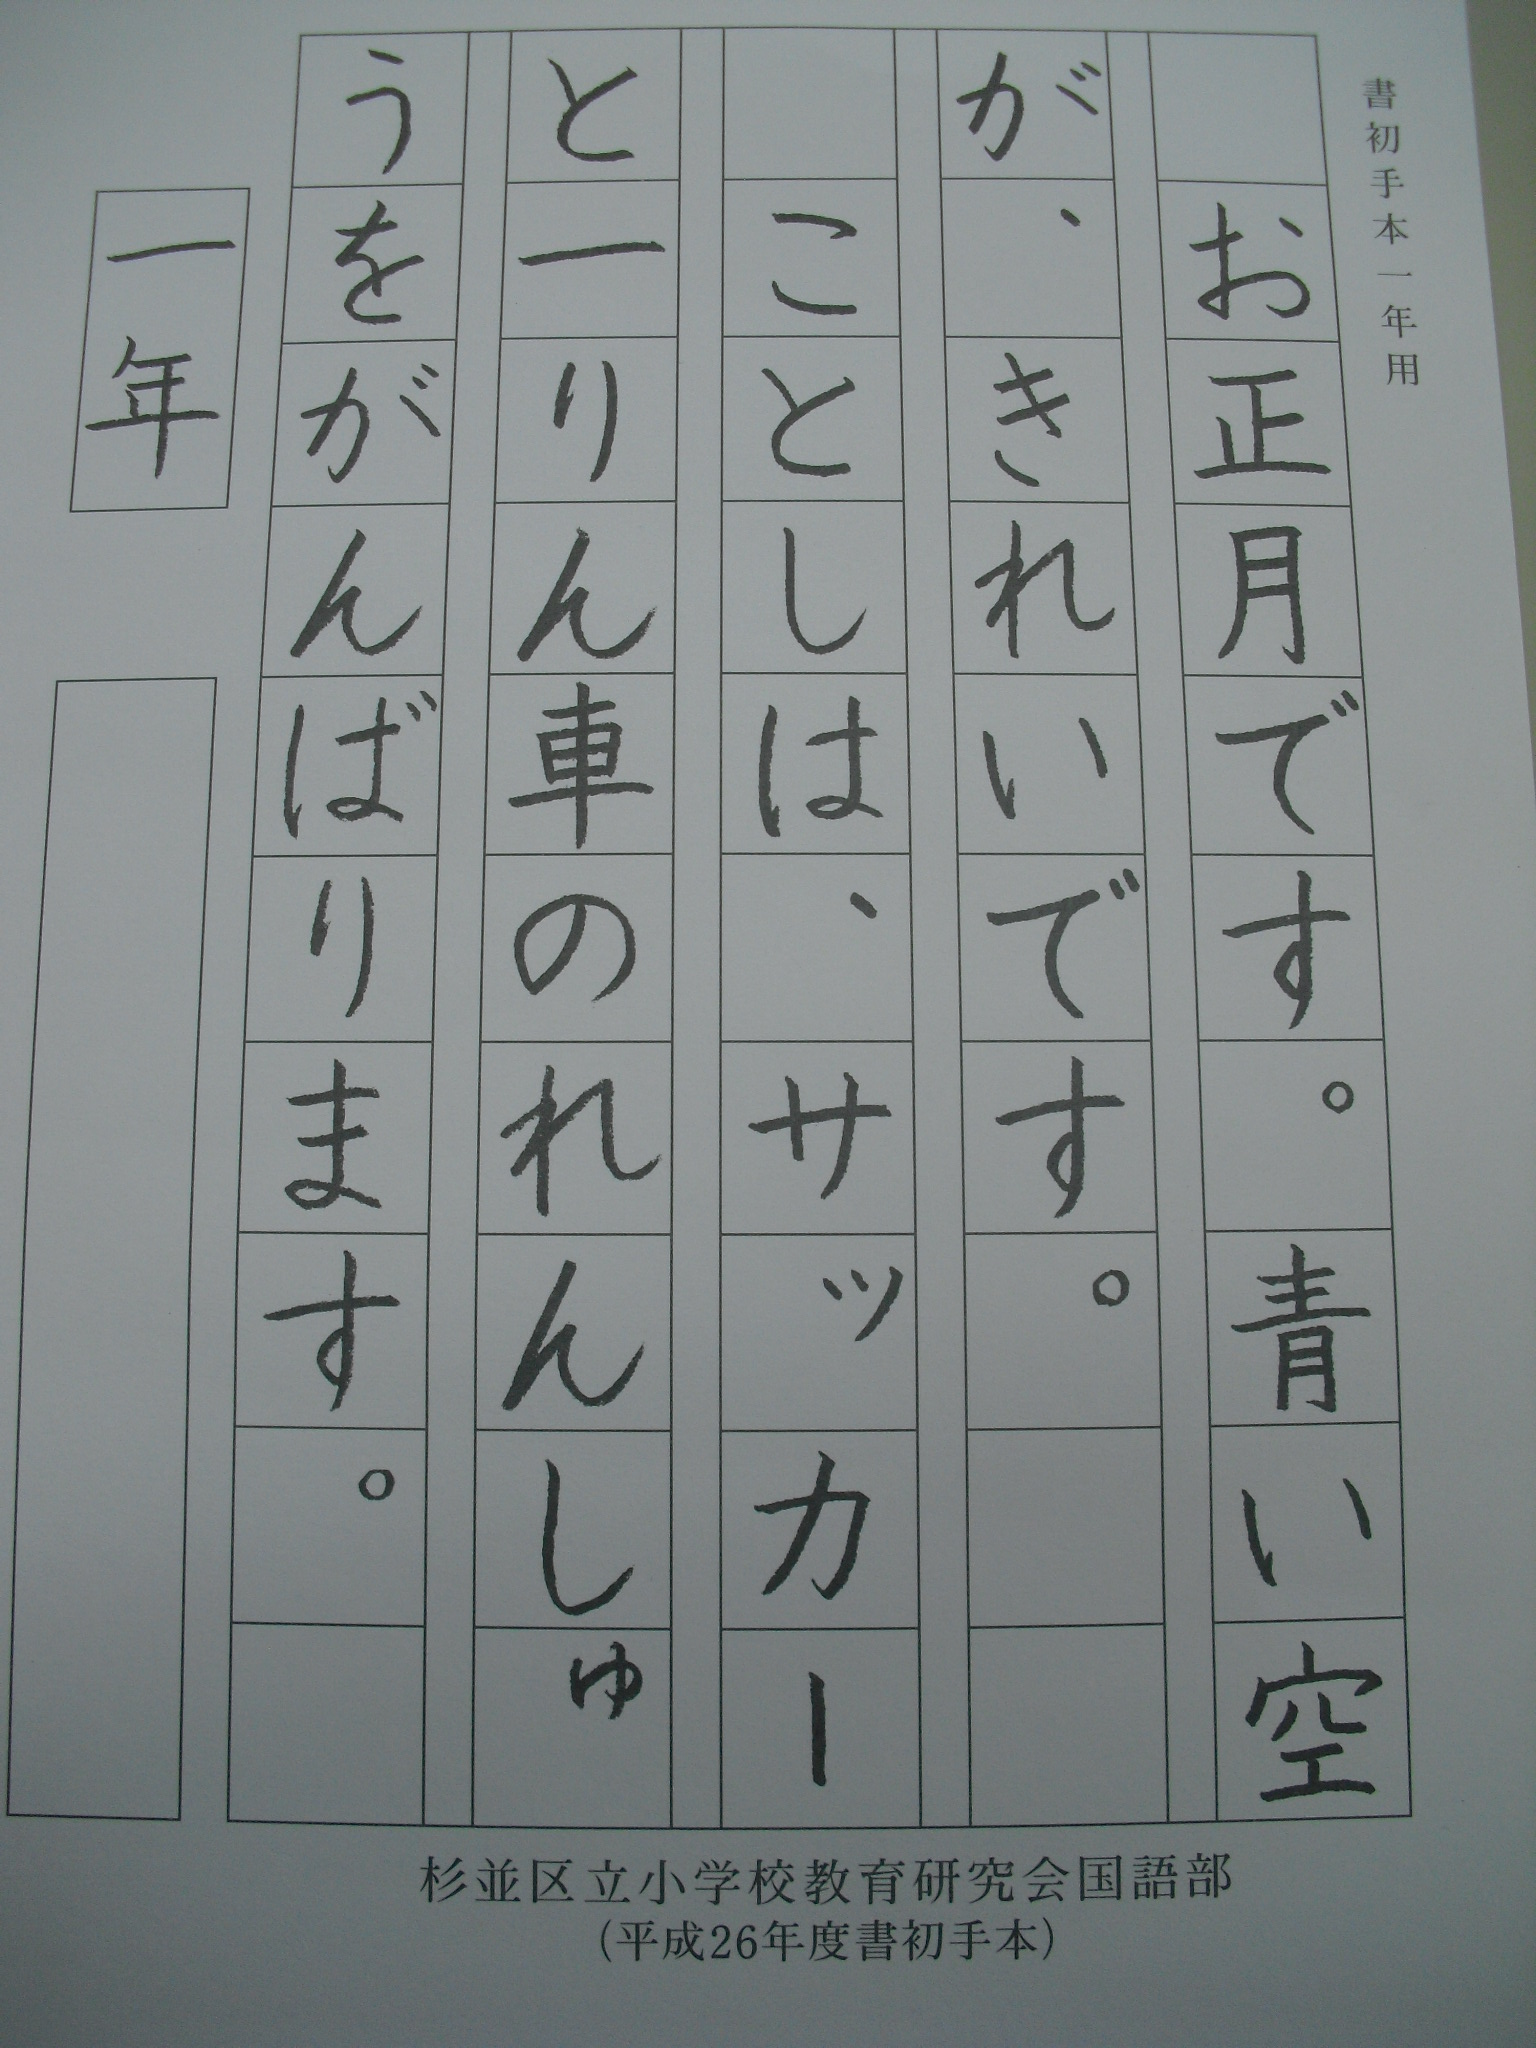 書初手本一年用
お正月です。青い空
が、きれいです。
ことしは、サッカー
と一りん車のれんしゅ
うをがんばります。
一年
杉並区立小学校教育研究会国語部
(平成26年度書初手本)